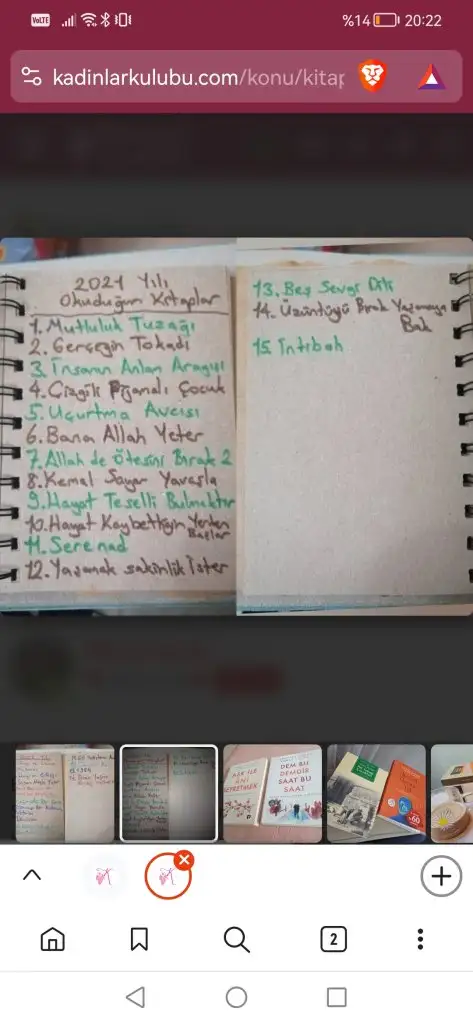 VoLTE
%14 20:22
kadinlarkulubu.com/konu/kitap
2021 Yılı
Okuduğum Kitaplar
1. Mutluluk Tuzağı
2. Gerçeğin Tokadı
3. İnsanın Anlam Arayışı
4. Çizgili Pijamalı Çocuk
5. Uçurtma Avcısı
6. Bana Allah Yeter
7. Allah de Ötesini Bırak 2
8. Kemal Sayar Yavaşla
9. Hayat Teselli Bulmaktır
10. Hayat Kaybettiğin Yerden
Başlar
11. Serenad
12. Yaşamak sakinlik İster
13. Beş Sevgi Dili
14. Üzüntüyü Bırak Yaşamaya
Bak
15. İntibah
DEM BU
DEMDİR
SAAT BU
SAAT
2